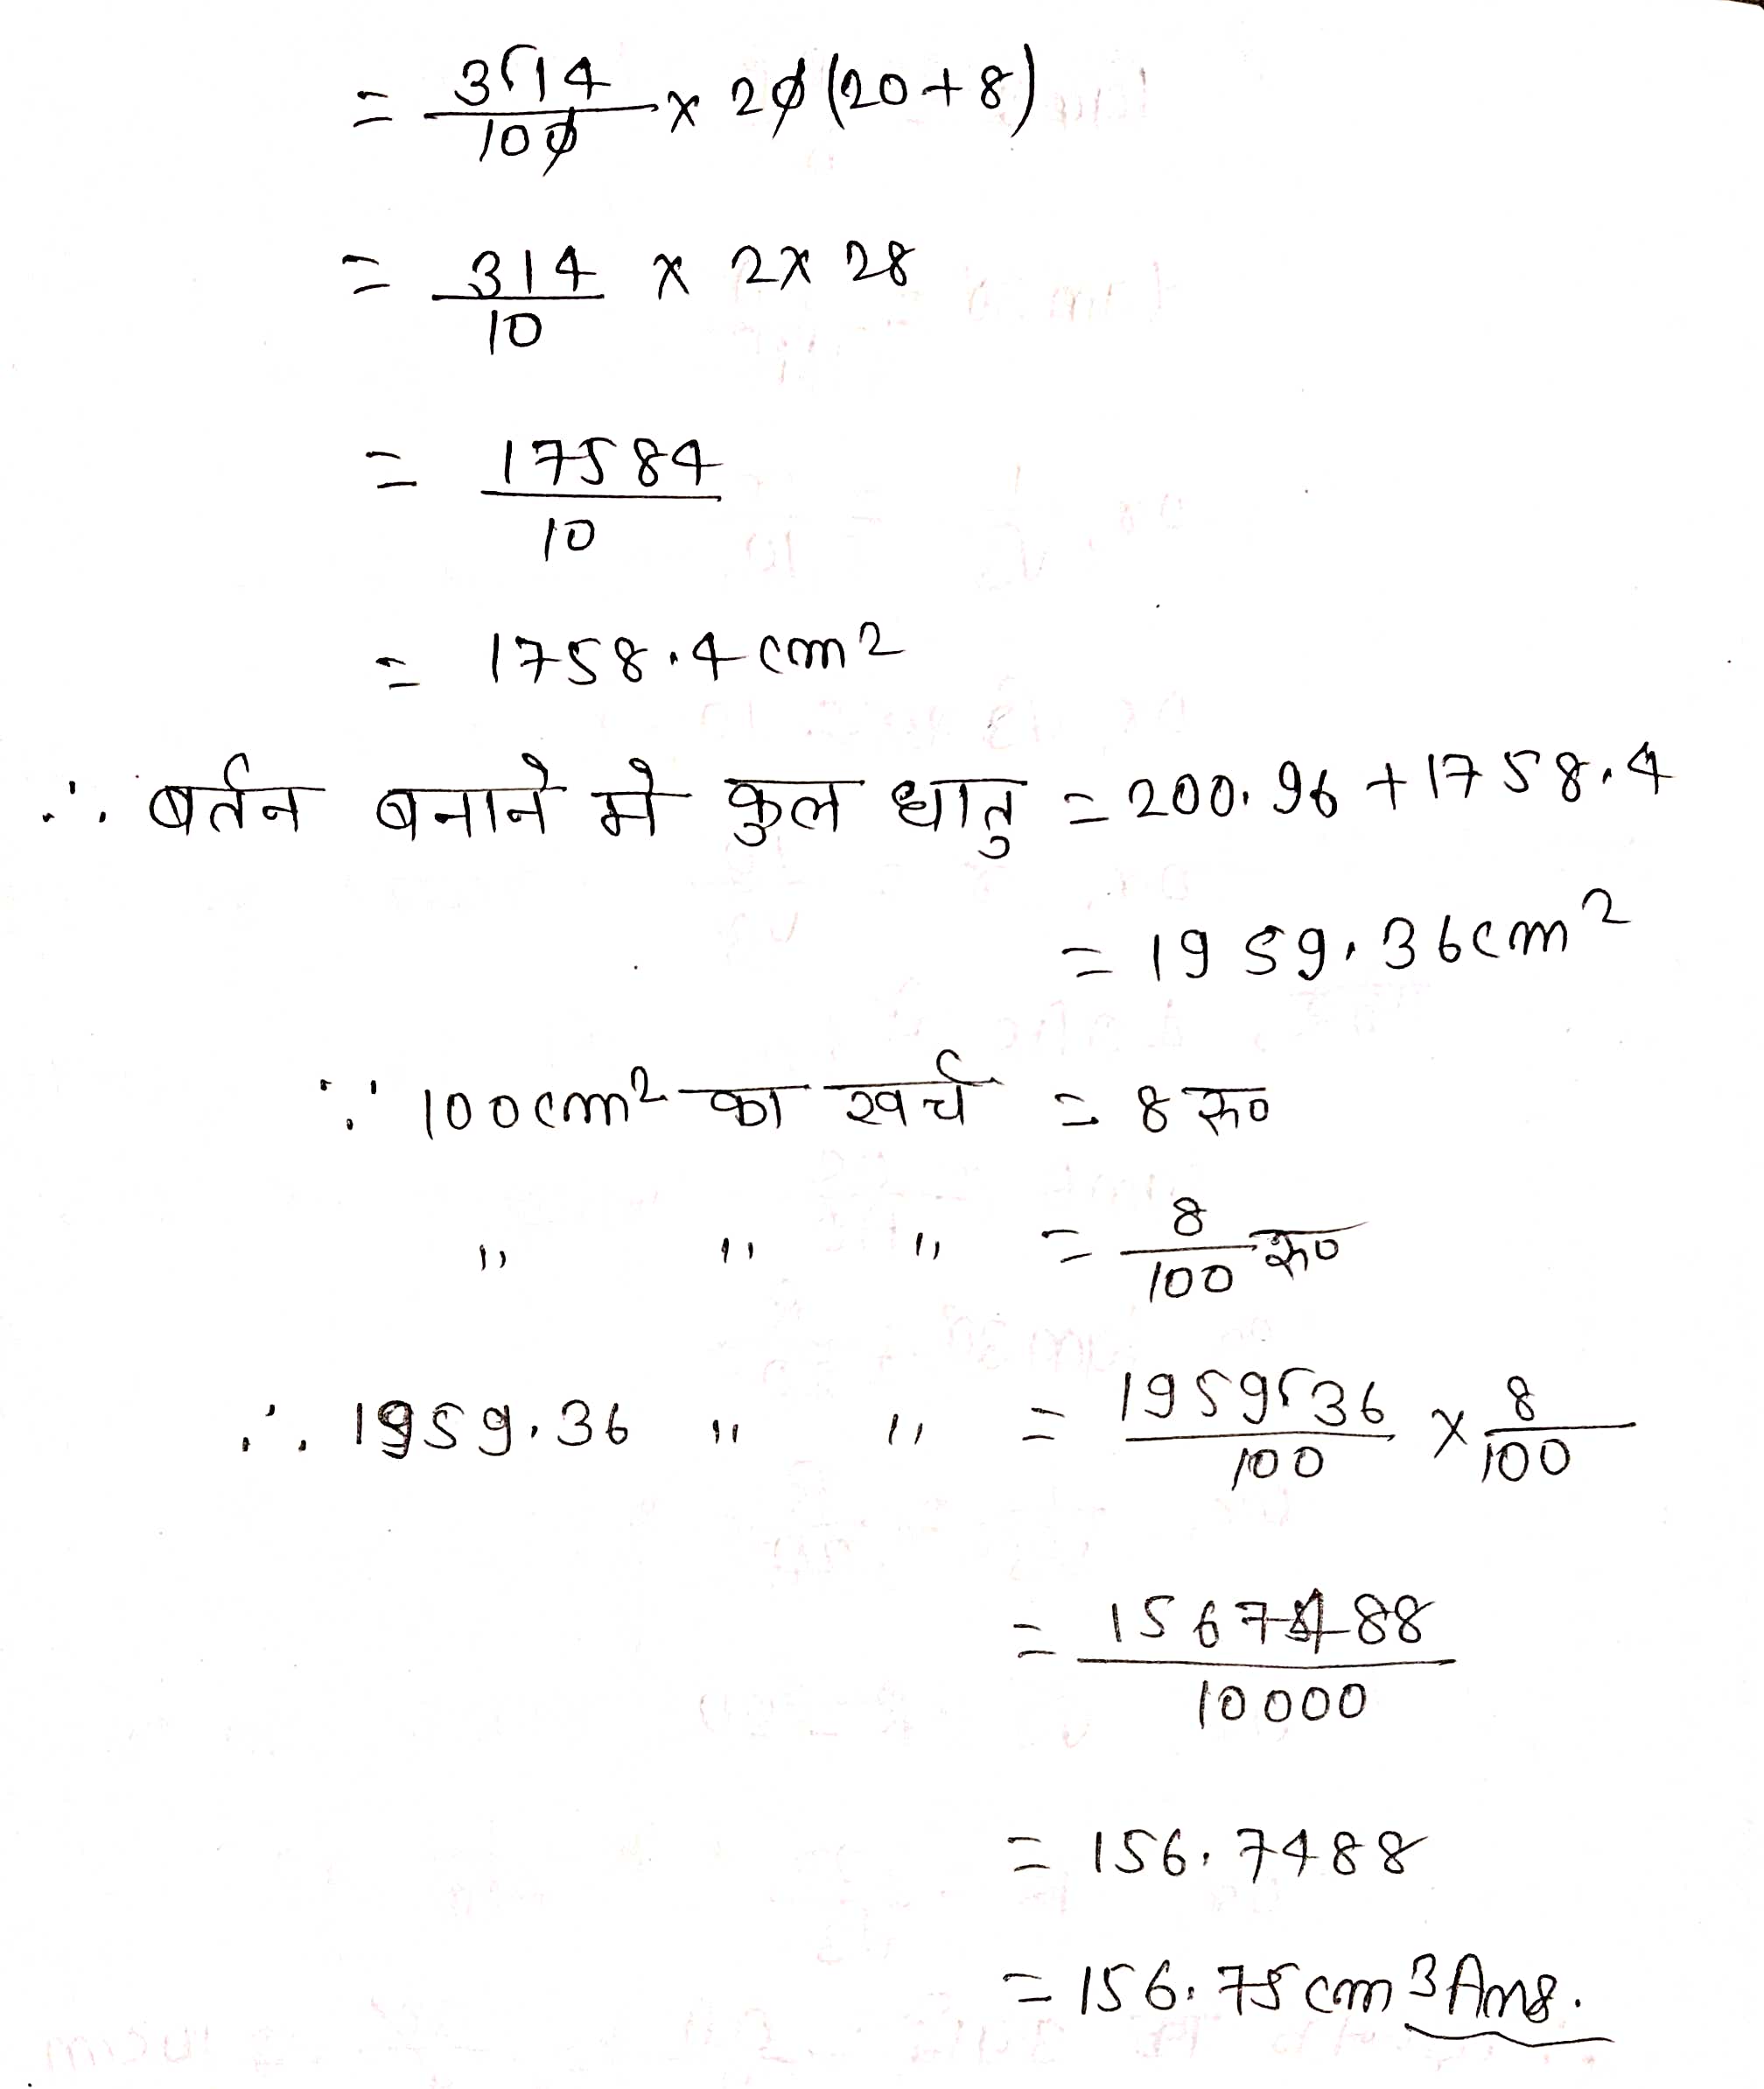 = 3.14/100 × 20(20+8)
= 314/10 × 2×28
= 17584/10
= 1758.4 cm2
∴ बर्तन बनाने मे कुल धातु = 200.96 + 1758.4
= 1959.36cm2
∵ 100cm2 का खर्च = 8 रू०
" " " = 8/100 रू०
∴ 1959.36 " " = 1959.36/100 × 8/100
= 1567488/10000
= 156.7488
= 156.75 cm3 Ans.